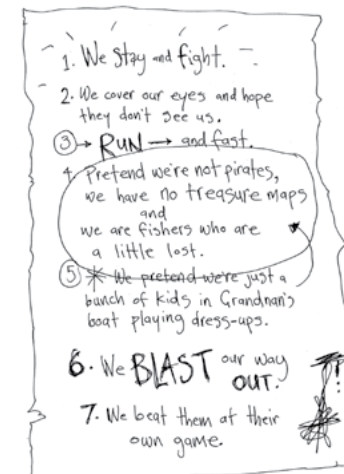 1. We stay and fight.
2. We cover our eyes and hope
they don't see us.
3 → RUN → and fast.
4. Pretend we're not pirates,
we have no treasure maps
and
we are fishers who are
a little lost.
5 We pretend we're just a
bunch of kids in Grandnan's
boat playing dress-ups.
6. We BLAST our way
OUT.
7. We beat them at their
own game.